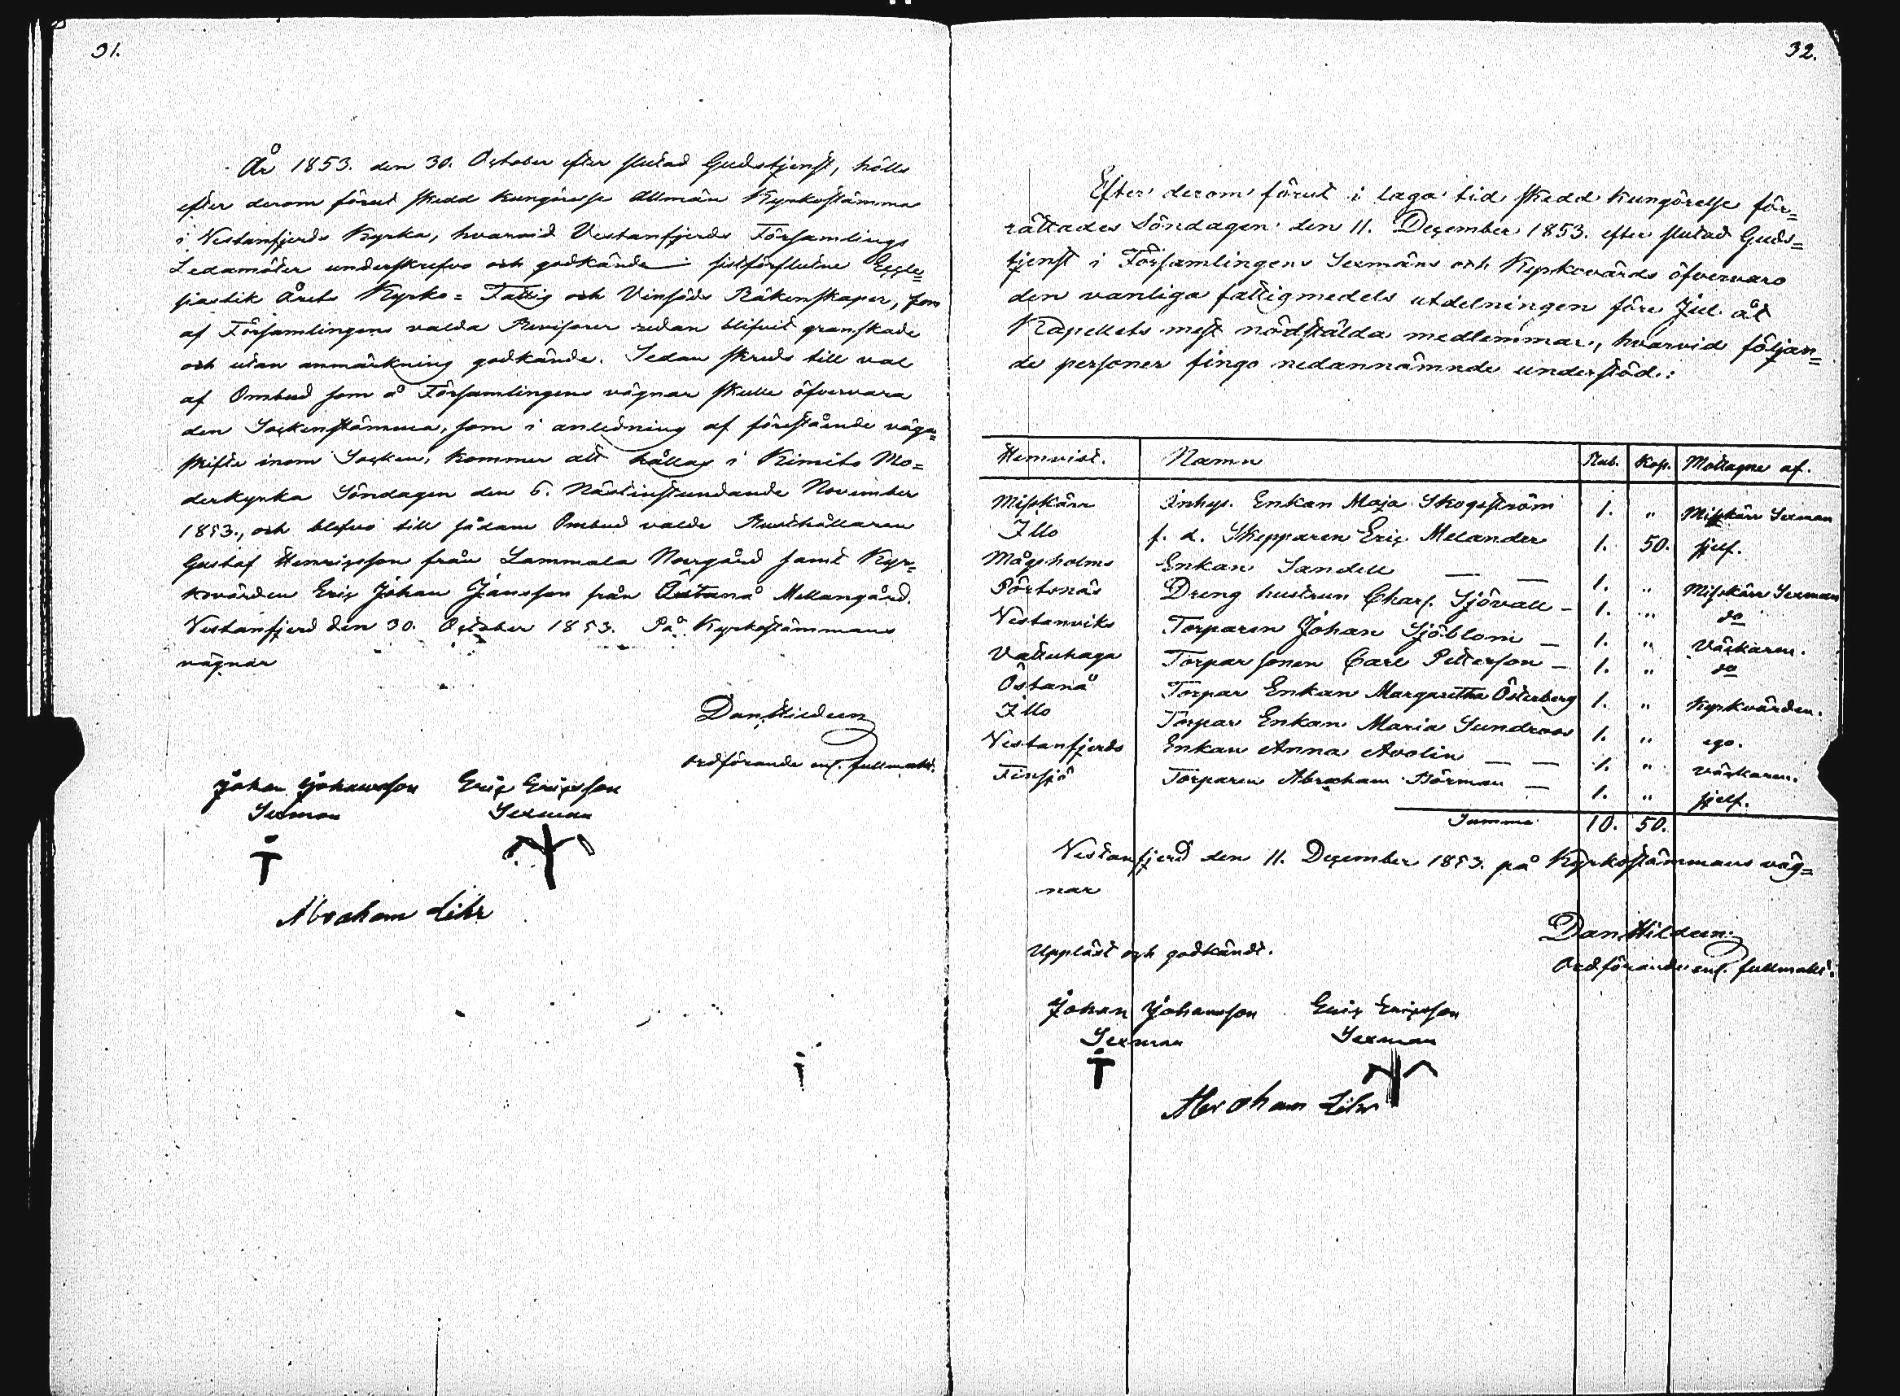 31.
År 1853. den 30. October efter slutad Gudstjenst, hölls
efter derom förut skedd kungörelse allmän Kyrkostämma
i Vestanfjerds Kyrka, hvarvid Vestanfjerds Församlings
Ledamöter underskrefvo och godkände sistförflutne Eccle=
siastik Årets Kyrko= Fattig och Vinsäds Räkenskaper, som
af Församlingens valda Revisorer redan blifvit granskade
och utan anmärkning godkände. Sedan skreds till val
af Ombud som å Församlingens vägnar skulle öfvervara
den Sockenstämma, som i anledning af förestående väga=
skifte inom Socken, kommer att hållas i Kimito Mo=
derkyrka Söndagen den 6. nästinstundande November
1853., och blefvo till sådane Ombud valde Rusthållaren
Gustaf Henricsson från Lammala Norrgård samt Kyr=
kovärden Eric Johan Jansson från Östanå Mellangård.
Vestanfjerd den 30. October 1853. På Kyrkostämmans
vägnar
Dan. Hildeen
ordförande enl. fullmakt.
Johan Johansson Eric Ericsson
Sexman Sexman
Abraham Lihr
32.
Efter derom förut i laga tid skedd kungörelse för=
rättades Söndagen den 11. December 1853. efter slutad Guds=
tjenst i Församlingens Sexmäns och Kyrkovärds öfvervaro
den vanliga fattigmedels utdelningen före Jul åt
Kapellets mest nödstälda medlemmar, hvarvid följan=
de personer fingo nedannämnde understöd:
Hemvist. Namn Rub. Kop. Mottagne af.
Misskärr Inhys. Enkan Maja Skogström 1. " Misskärr Sexman
Illo f. d. Skepparen Eric Melander 1. 50. sjelf.
Mågsholms Enkan Sandell — — 1. " Misskärr Sexman
Pörtsnäs Dreng hustrun Charl. Sjövall — 1. " do
Vestanviks Torparen Johan Sjöblom — 1. " Väckaren.
Vattuhaga Torpar sonen Carl Petterson — 1. " do
Östanå Torpar Enkan Margaretha Österberg 1. " Kyrkvärden.
Illo Torpar Enkan Maria Sundroos 1. " ego.
Vestanfjerds Enkan Anna Avolin — — 1. " väckaren.
Finsjö Torparen Abraham Börman — 1. " sjelf.
Summa 10. 50.
Vestanfjerd den 11. December 1853. på Kyrkostämmans väg=
nar
Dan. Hildeen.
Ordförande enl. fullmakt.
Uppläst och godkändt.
Johan Johansson Eric Ericsson
Sexman Sexman
Abraham Lihr